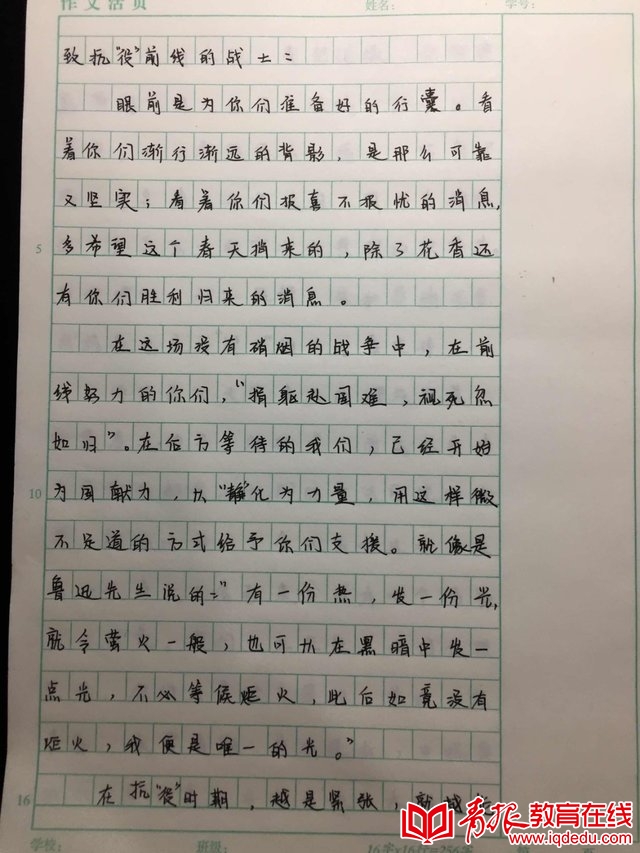 作文活页 姓名： 学号：
致抗“役”前线的战士：
眼前是为你们准备好的行囊。看
着你们渐行渐远的背影，是那么可靠
又坚实；看着你们报喜不报忧的消息，
多希望这个春天捎来的，除了花香还
5 有你们胜利归来的消息。
在这场没有硝烟的战争中，在前
线努力的你们，“捐躯赴国难，视死忽
如归”。在后方等待的我们，已经开始
10 为国献力，以“静”化为力量，用这样微
不足道的方式给予你们支援。就像是
鲁迅先生说的：“有一份热，发一份光，
就令萤火一般，也可以在黑暗中发一
点光，不必等候炬火，此后如竟没有
炬火，我便是唯一的光。”
16 在抗“役”时期，越是紧张，就越
学校： 班级： 16字×16行=256字
青报教育在线
www.iqdedu.com